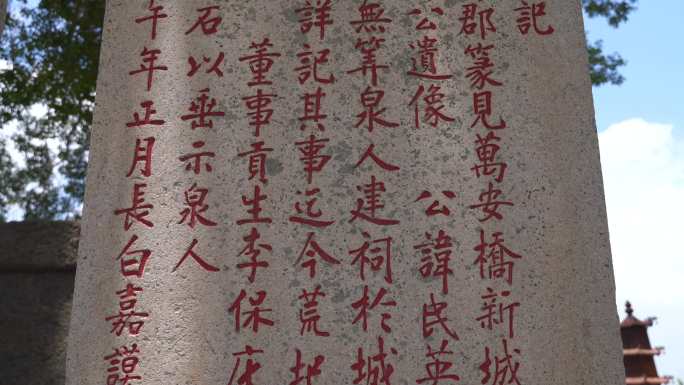 記
郡篆見萬安橋新城
公遺像 公諱民英
無筭泉人建祠於城
詳記其事迄今荒圯
董事貢生李保
石以垂示泉人
午年正月長白嘉謨